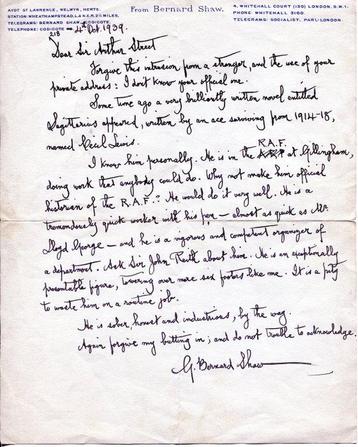 AYOT ST LAWRENCE, WELWYN, HERTS.
STATION: WHEATHAMPSTEAD, L.& N.E.R. 2¼ MILES.
TELEGRAMS: BERNARD SHAW, CODICOTE
TELEPHONE: CODICOTE 218
From Bernard Shaw.
4, WHITEHALL COURT (130) LONDON, S.W.1.
PHONE: WHITEHALL 3160.
TELEGRAMS: SOCIALIST, PARL-LONDON
4th Oct 1939.
Dear Sir Arthur Street
Forgive this intrusion from a stranger, and the use of your
private address: I don't know your official one.
Some time ago a very brilliantly written novel entitled
Sagittarius appeared, written by an ace surviving from 1914-18,
named Cecil Lewis.
I know him personally. He is in the R.A.F. at Gillingham,
doing work that anybody could do. Why not make him official
historian of the R.A.F.? He would do it very well. He is a
tremendously quick worker with his pen — almost as quick as Mr
Lloyd George — and he is a vigorous and competent organizer of
a department. Ask Sir John Reith about him. He is an exceptionally
presentable figure, towering over mere six footers like me. It is a pity
to waste him on a routine job.
He is sober honest and industrious, by the way.
Again forgive my butting in; and do not trouble to acknowledge.
G. Bernard Shaw